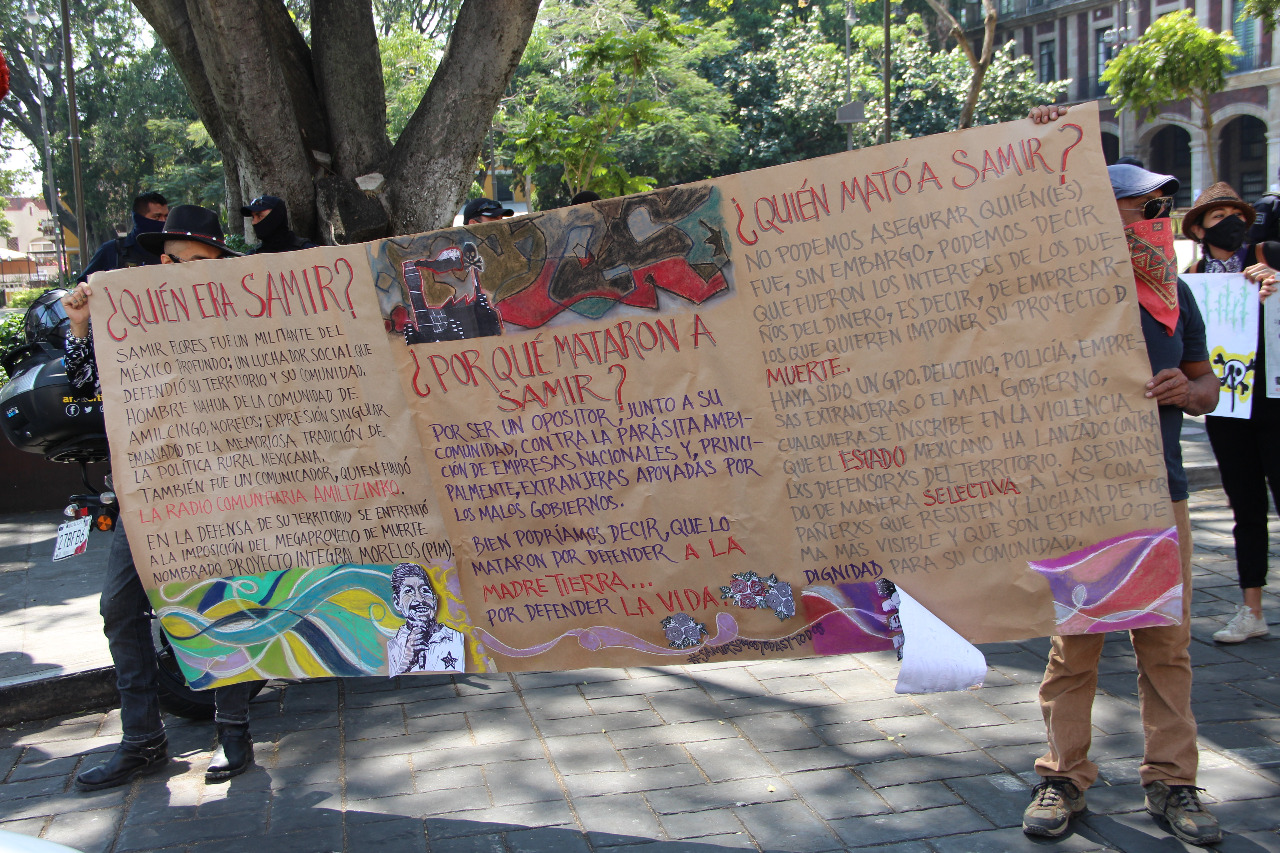 ¿QUIÉN ERA SAMIR?
SAMIR FLORES FUE UN MILITANTE DEL
MÉXICO PROFUNDO; UN LUCHADOR SOCIAL QUE
DEFENDIÓ SU TERRITORIO Y SU COMUNIDAD.
HOMBRE NAHUA DE LA COMUNIDAD DE
AMILCINGO, MORELOS; EXPRESIÓN SINGULAR
EMANADO DE LA MEMORIOSA TRADICIÓN DE
LA POLÍTICA RURAL MEXICANA.
TAMBIÉN FUE UN COMUNICADOR, QUIEN FUNDÓ
LA RADIO COMUNITARIA AMILTZINKO.
EN LA DEFENSA DE SU TERRITORIO SE ENFRENTÓ
A LA IMPOSICIÓN DEL MEGAPROYECTO DE MUERTE
NOMBRADO PROYECTO INTEGRAL MORELOS (PIM).
¿POR QUÉ MATARON A
SAMIR?
POR SER UN OPOSITOR, JUNTO A SU
COMUNIDAD, CONTRA LA PARÁSITA AMBI-
CIÓN DE EMPRESAS NACIONALES Y, PRINCI-
PALMENTE, EXTRANJERAS APOYADAS POR
LOS MALOS GOBIERNOS.
BIEN PODRÍAMOS DECIR, QUE LO
MATARON POR DEFENDER A LA
MADRE TIERRA...
POR DEFENDER LA VIDA.
¿QUIÉN MATÓ A SAMIR?
NO PODEMOS ASEGURAR QUIÉN(ES)
FUE, SIN EMBARGO, PODEMOS DECIR
QUE FUERON LOS INTERESES DE LOS DUE-
ÑOS DEL DINERO, ES DECIR, DE EMPRESAR-
LOS QUE QUIEREN IMPONER SU PROYECTO D
MUERTE.
HAYA SIDO UN GPO. DELICTIVO, POLICÍA, EMPRE-
SAS EXTRANJERAS O EL MAL GOBIERNO,
CUALQUIERA SE INSCRIBE EN LA VIOLENCIA
QUE EL ESTADO MEXICANO HA LANZADO CONTRA
LXS DEFENSORXS DEL TERRITORIO. ASESINAN
DO DE MANERA SELECTIVA A LXS COM-
PAÑERXS QUE RESISTEN Y LUCHAN DE FOR
MA MAS VISIBLE Y QUE SON EJEMPLO DE
DIGNIDAD PARA SU COMUNIDAD.